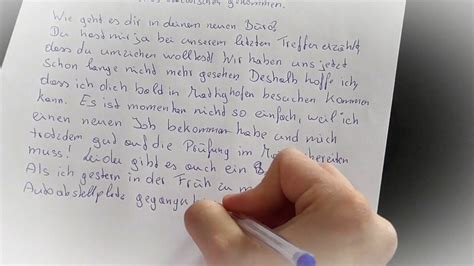 gekommen.
Wie geht es dir in deinem neuen Büro?
Du hast mir ja bei unserem letzten Treffen erzählt,
dass du umziehen wolltest! Wir haben uns jetzt
schon lange nicht mehr gesehen Deshalb hoffe ich,
dass ich dich bald in Mattighofen besuchen kommen
kann. Es ist momentan nicht so einfach, weil ich
einen neuen Job bekommen habe und mich
trotzdem gut auf die Prüfung im bereiten
muss! Leider gibt es auch ein
Als ich gestern in der Früh zu m
Autoabstellplatz gegangen